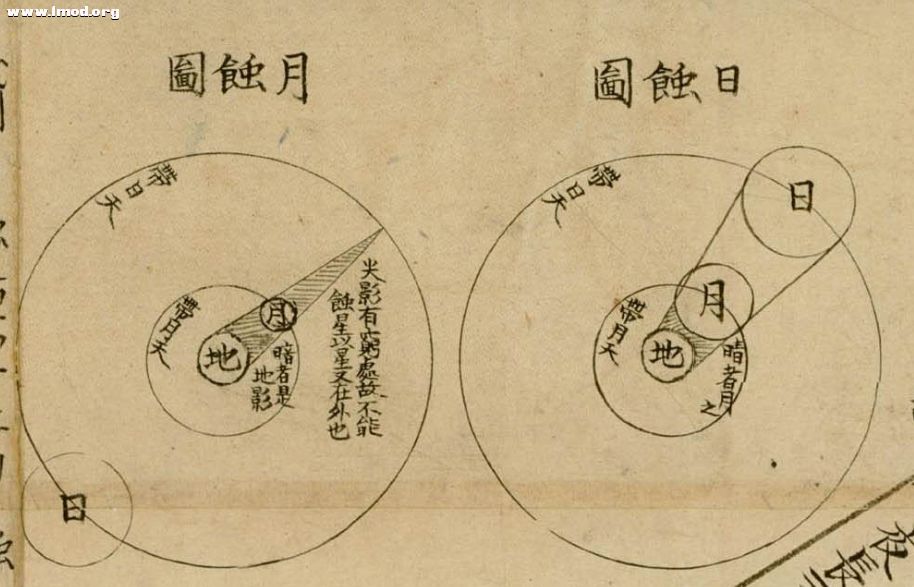 www.lmod.org
日蝕圖
帶日天
日
月
帶月天
地
暗者月
之
月蝕圖
帶日天
尖影有窮處故不能
蝕星以星又在外也
月
帶月天
地
暗者是
地影
日
夜長